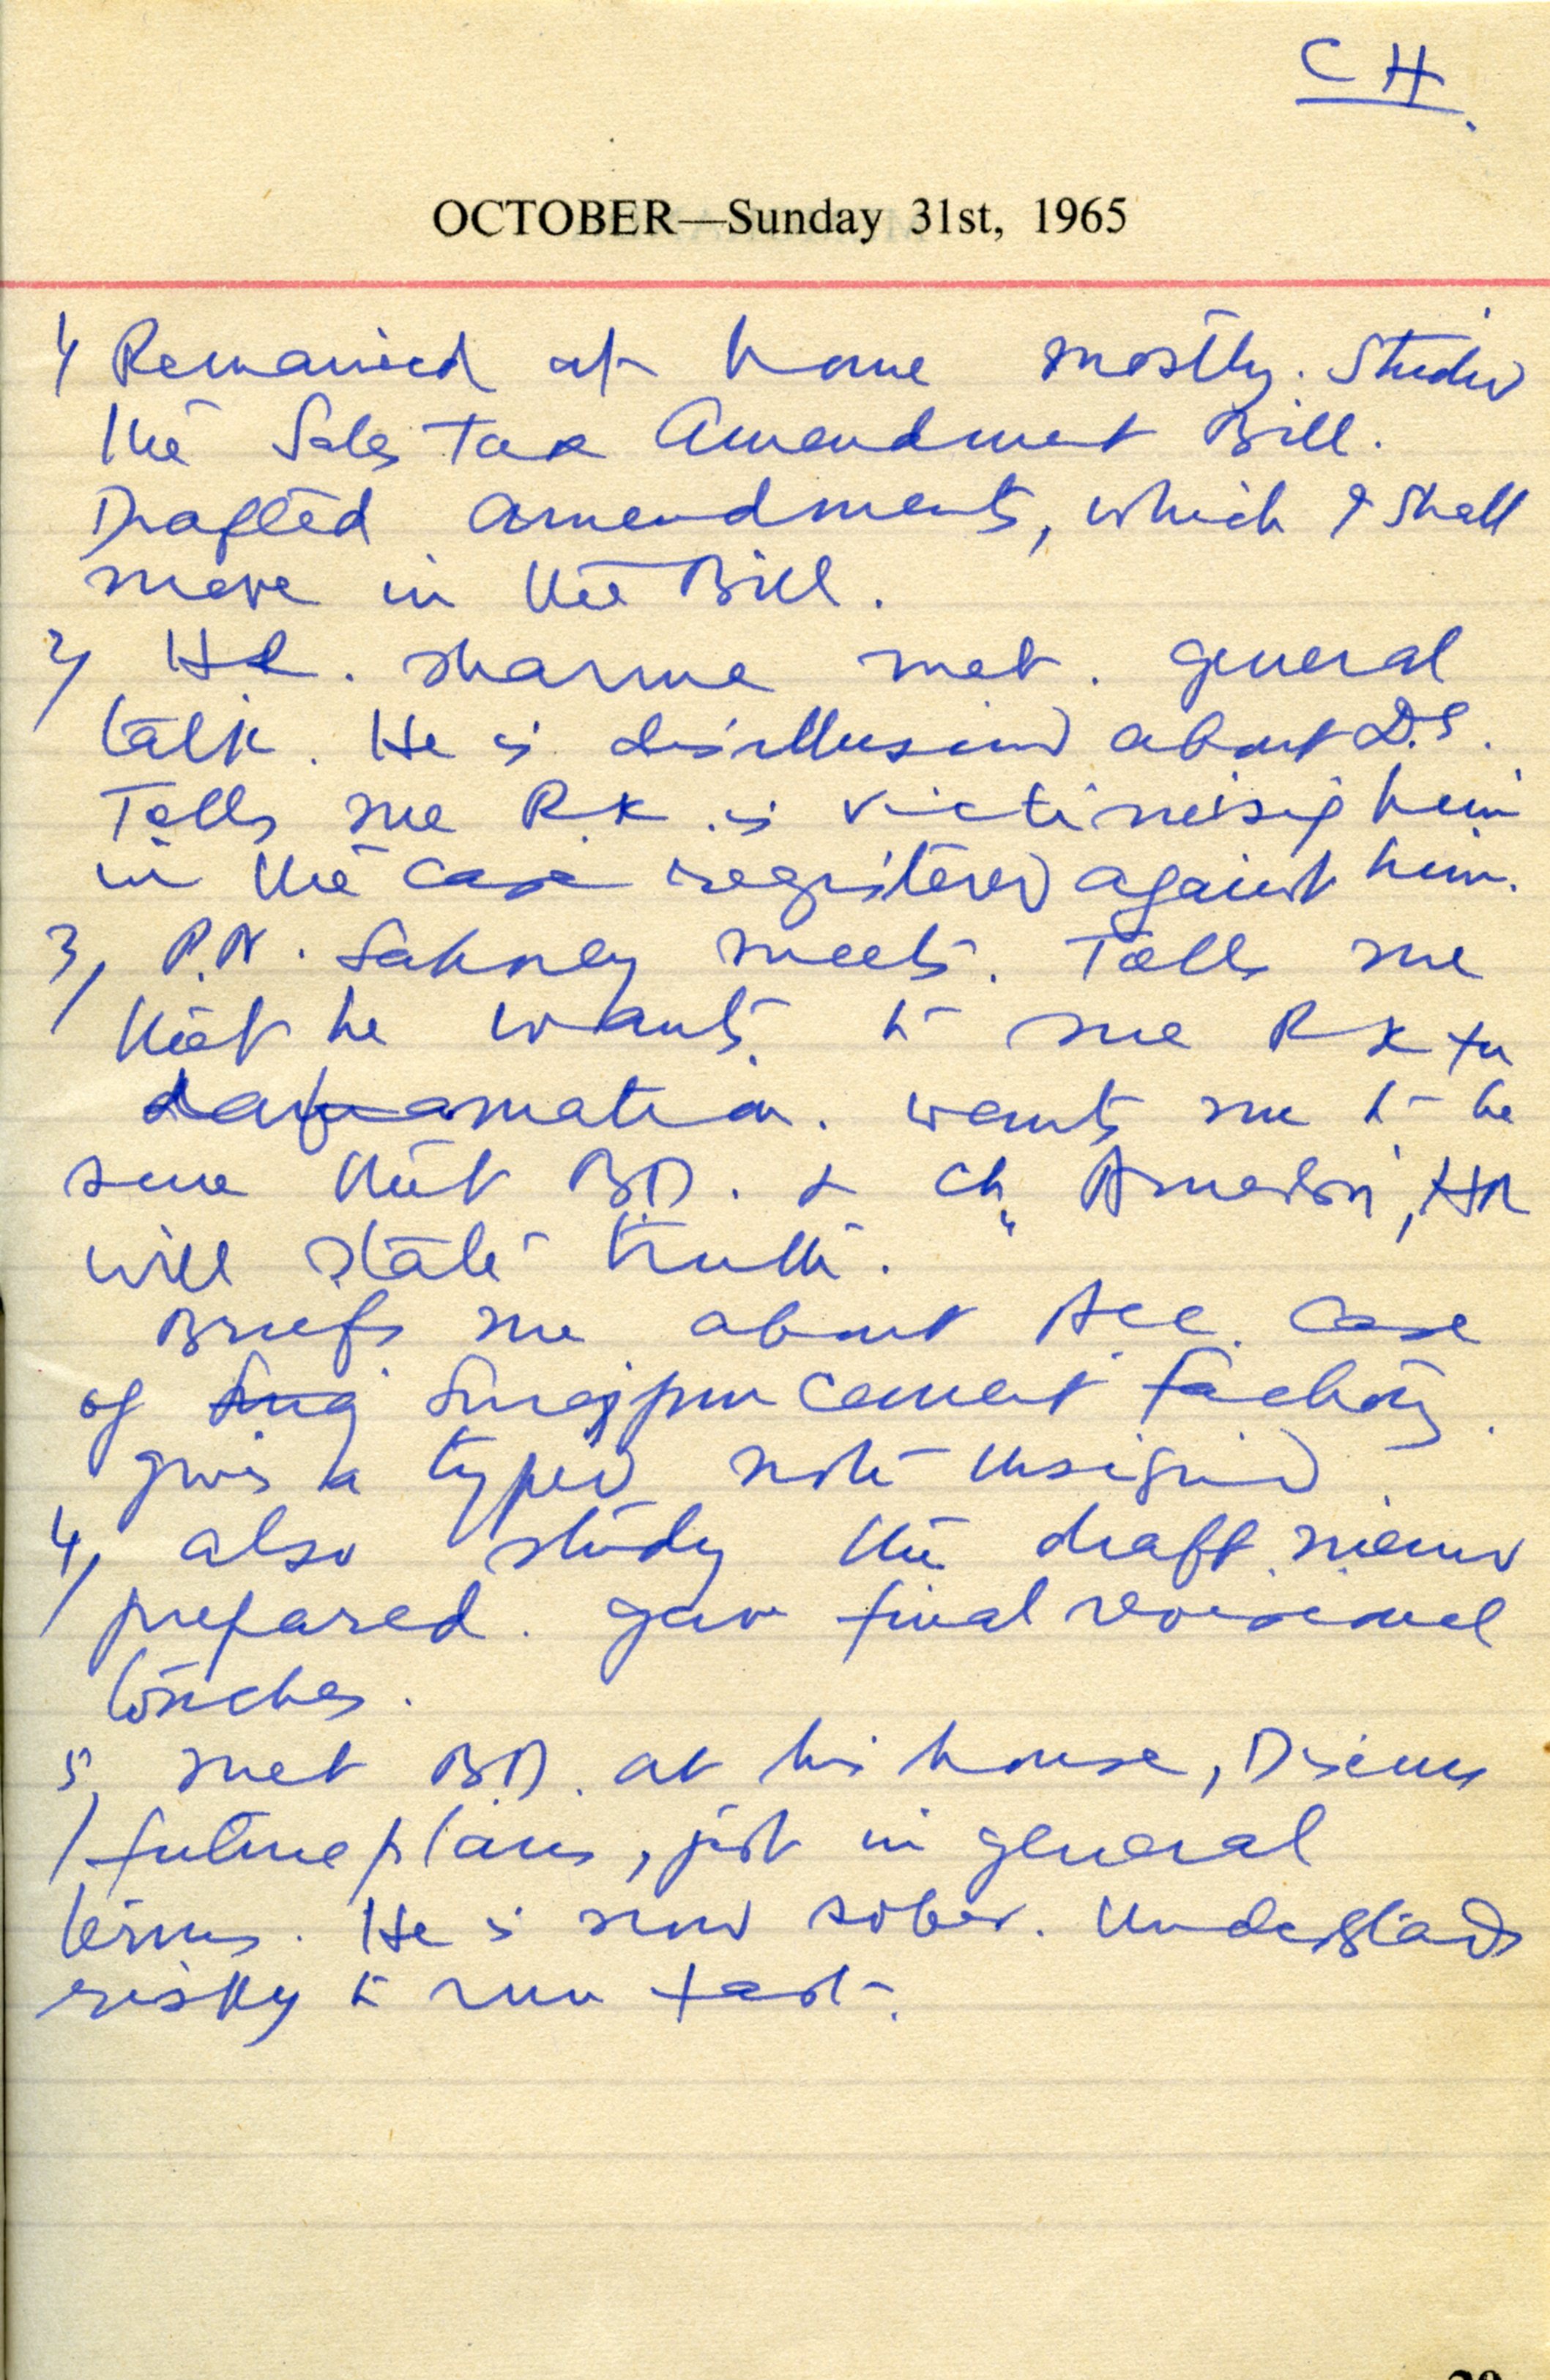 CH.
OCTOBER—Sunday 31st, 1965
1/ Remained at home mostly. Studied
the Sales Tax Amendment Bill.
Drafted amendments, which I shall
move in the Bill.
2/ H.R. Sharma met. general
talk. He is disillusioned about D.S.
Tells me R.K. is victimising him
in the case registered against him.
3/ P.N. Sahney meets. Tells me
that he wants to sue RK for
defamation. wants me to be
sure that BD. & Ch. HR
will state truth.
Briefs me about case
of Suraj Surajpur Cement Factory.
gives a typed note unsigned.
4/ also study the draft memo
prepared. gave final
touches.
5/ met B.D. at his house, Discuss
future plans, just in general
terms. He is now sober. Understands
risky to run fast.